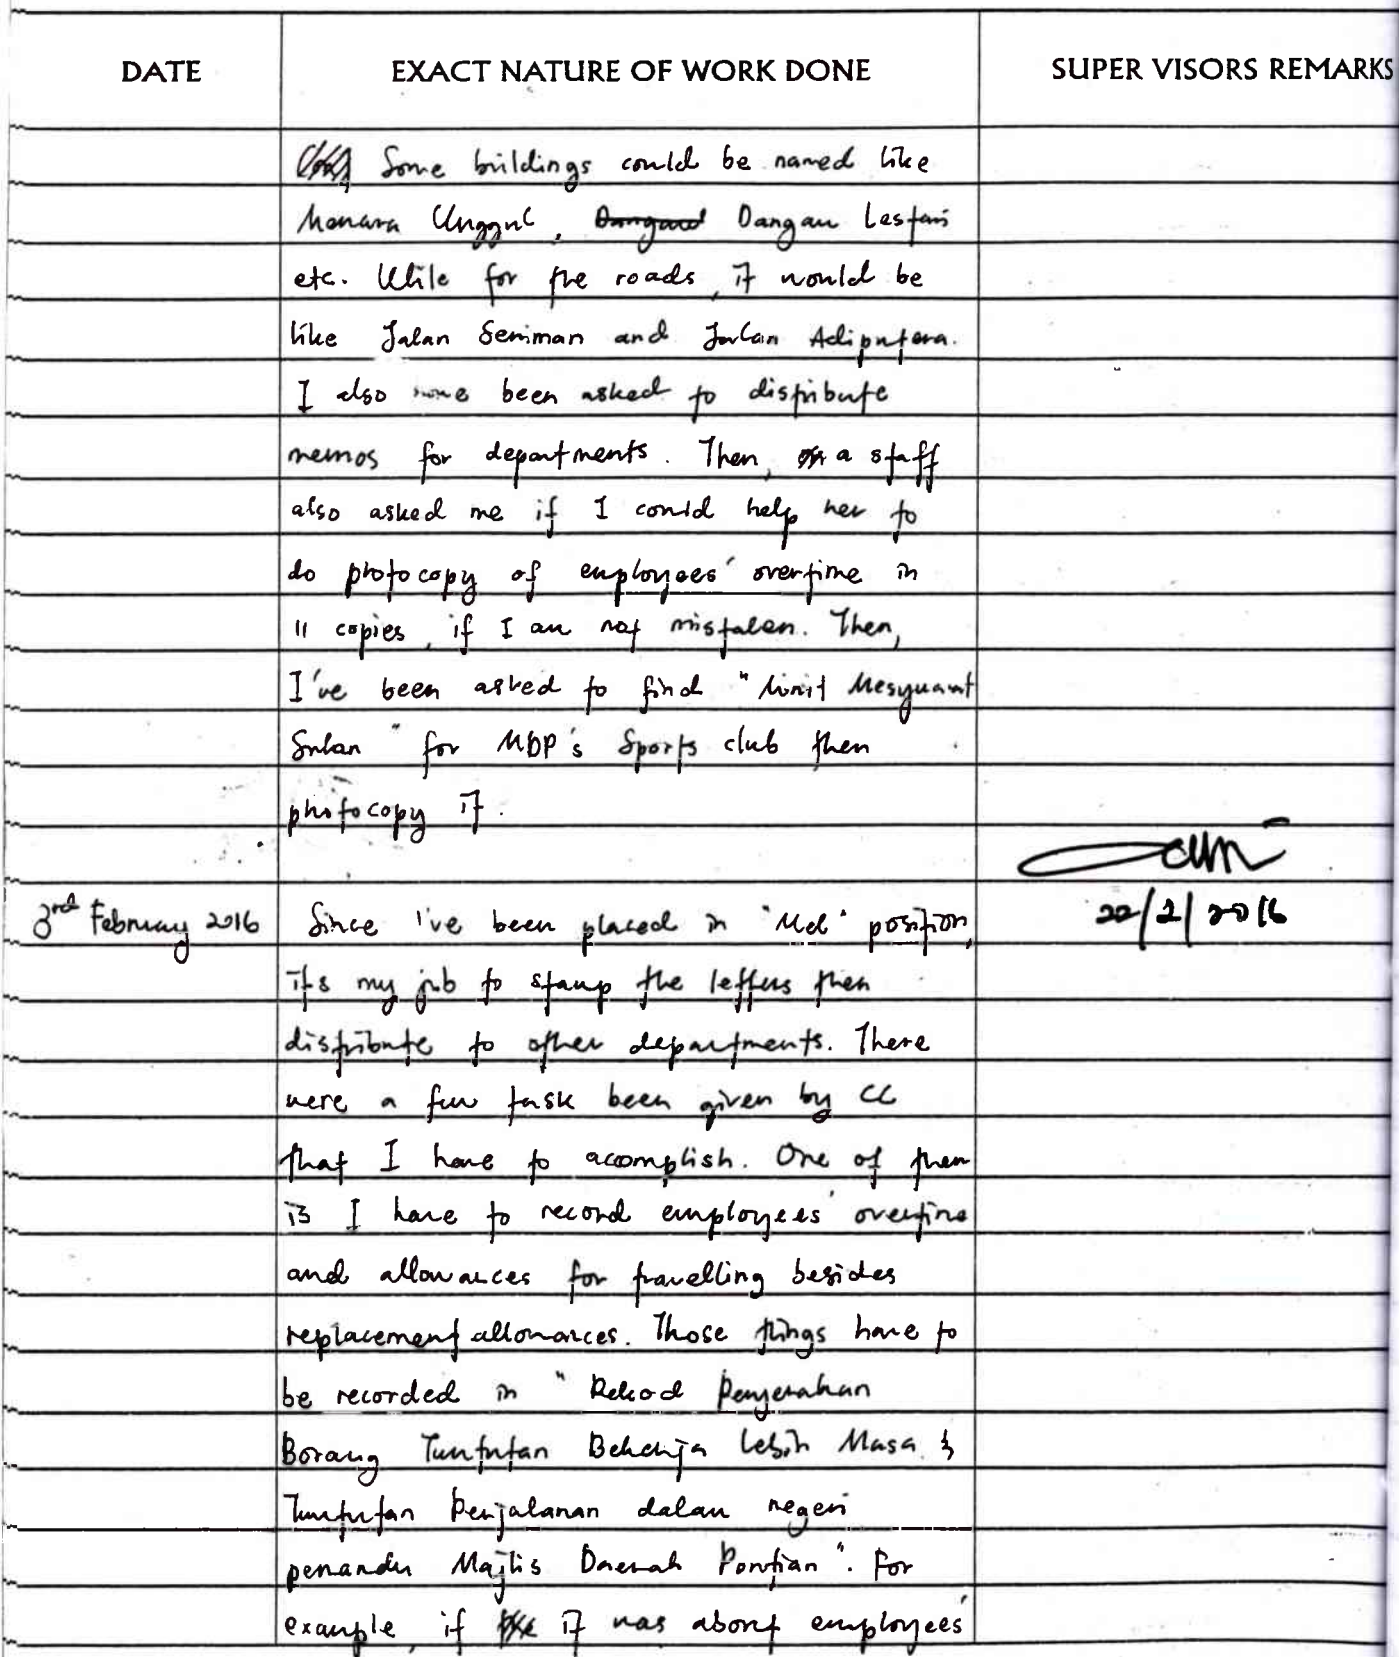 DATE EXACT NATURE OF WORK DONE SUPER VISORS REMARKS
Some buildings could be named like
Menara Unggul, Dangau Lestari
etc. While for the roads, it would be
like Jalan Seniman and Jalan Adiputera.
I also have been asked to distribute
memos for departments. Then, a staff
also asked me if I could help her to
do photocopy of employees' overtime in
11 copies, if I am not mistaken. Then,
I've been asked to find "Minit Mesyuarat
Sukan" for MDP's Sports club then
photocopy it.
3rd February 2016 Since I've been placed in "Mel" position, 22/2/2016
its my job to stamp the letters then
distribute to other departments. There
were a few task been given by CC
that I have to accomplish. One of them
is I have to record employees' overtime
and allowances for travelling besides
replacement allowances. Those things have to
be recorded in "Rekod Penyerahan
Borang Tuntutan Bekerja Lebih Masa &
Tuntutan Perjalanan dalam negeri
pemandu Majlis Daerah Pontian". For
example, if it was about employees'